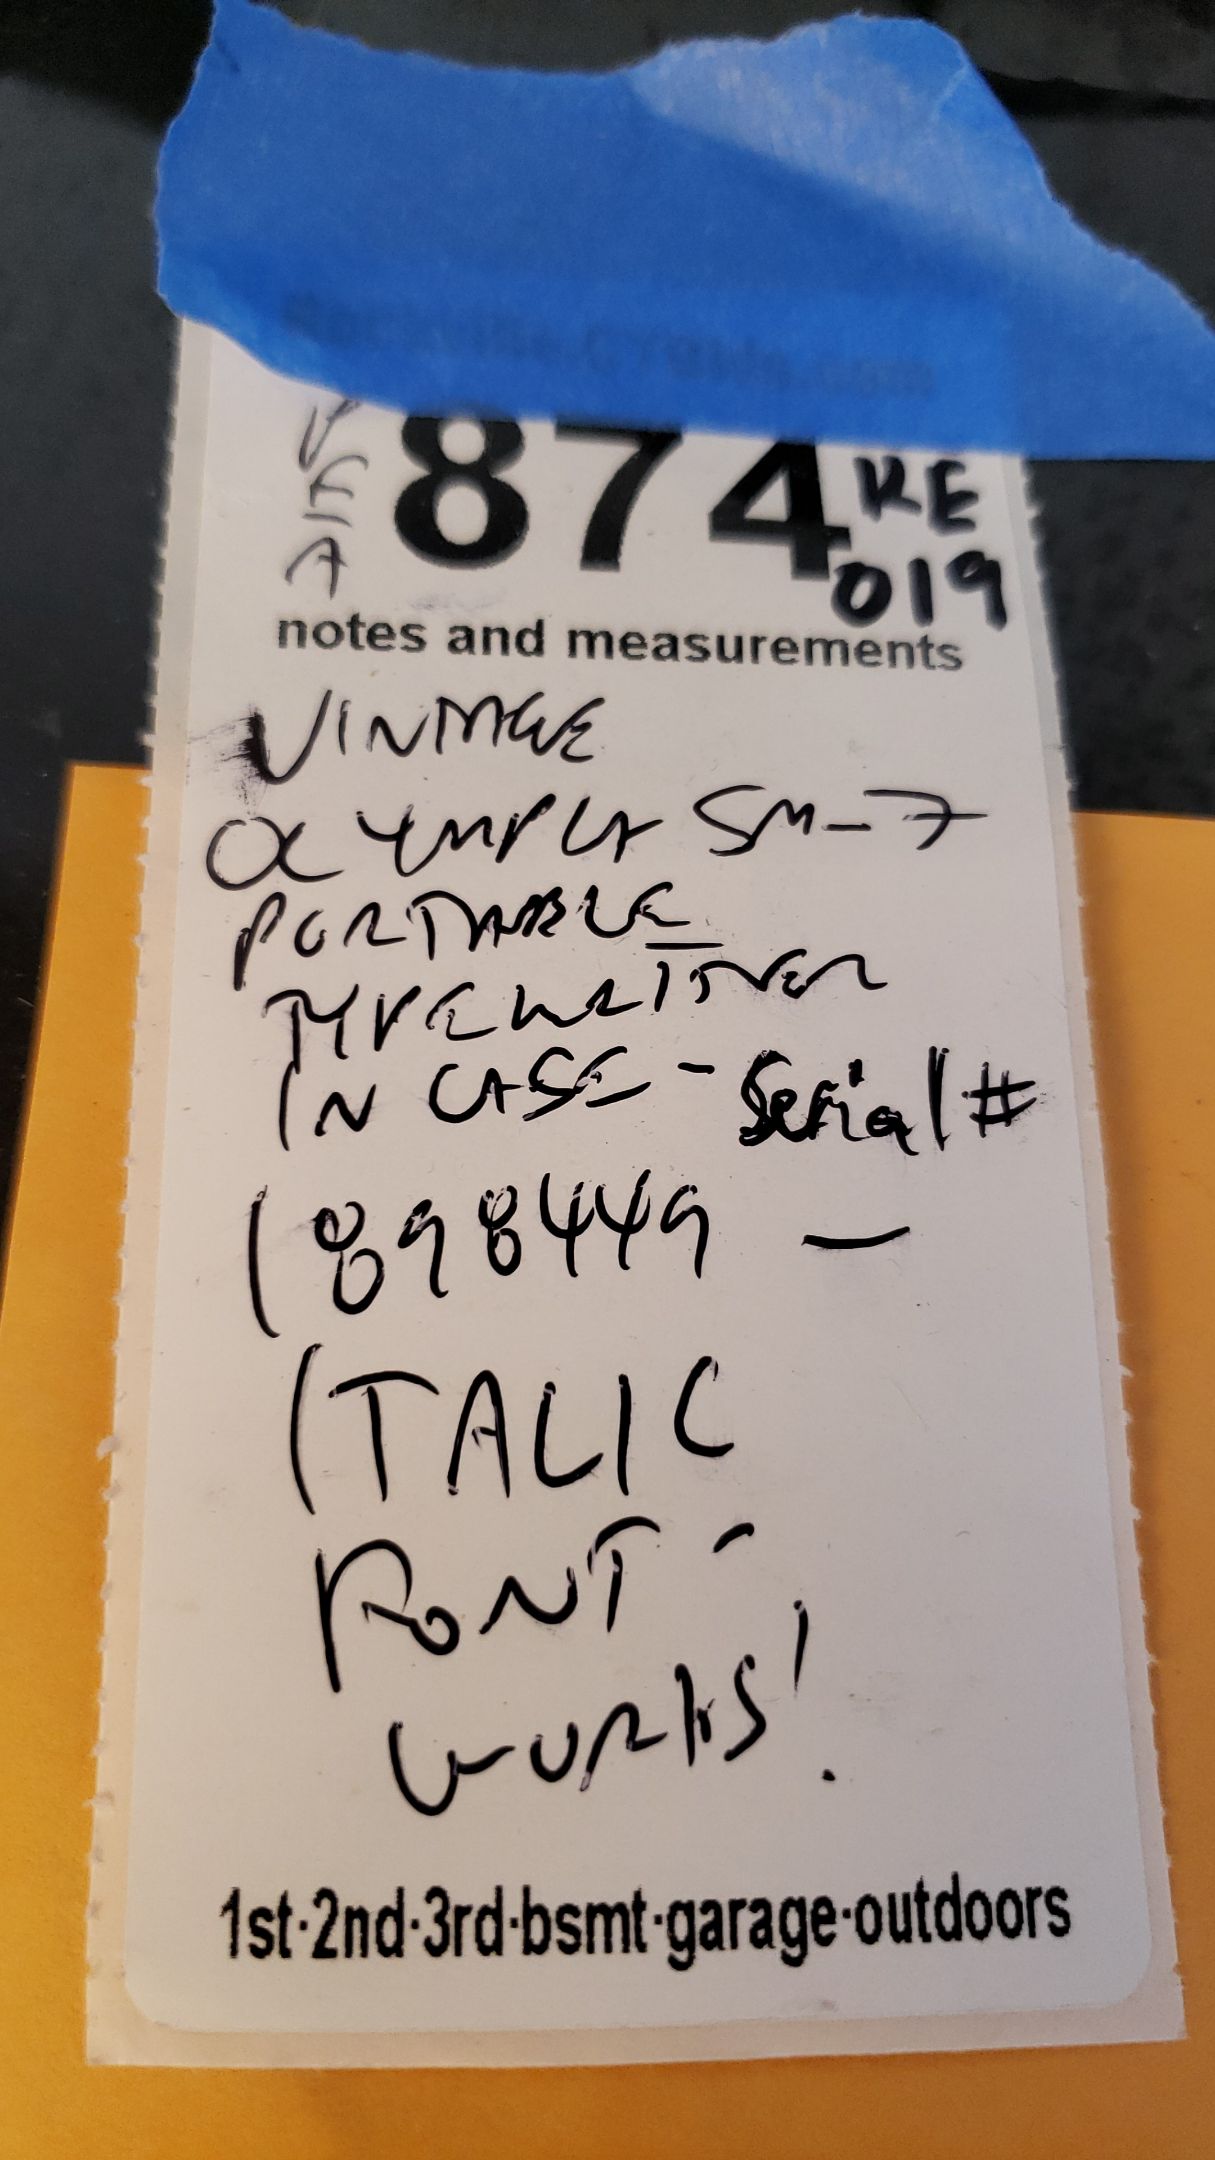 874 KE
019
notes and measurements
VINTAGE
OLYMPIA SM-7
PORTABLE
TYPEWRITER
IN CASE - Serial #
1898449 -
ITALIC
FONT -
WORKS!
1st·2nd·3rd·bsmt·garage·outdoors